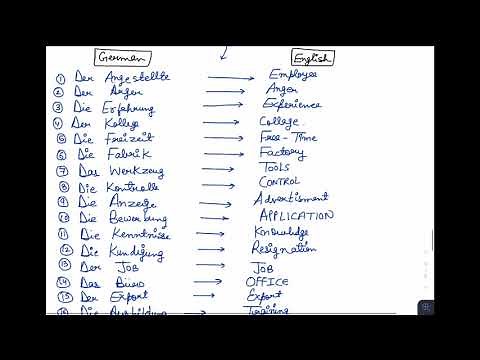 German English
① Der Angestellte → Employee
② Der Ärger → Anger
③ Die Erfahrung → Experience
④ Der Kollege → College.
⑤ Die Freizeit → Free-Time
⑥ Die Fabrik → Factory
⑦ Das Werkzeug → TOOLS
⑧ Die Kontrolle → CONTROL
⑨ Die Anzeige → Advertisment
⑩ Die Bewerbung → APPLICATION
⑪ Die Kenntnisse → Knowledge
⑫ Die Kundigung → Resignation
⑬ Der JOB → JOB
⑭ Das Büro → OFFICE
⑮ Der Export → Export
⑯ Die Ausbildung → Training